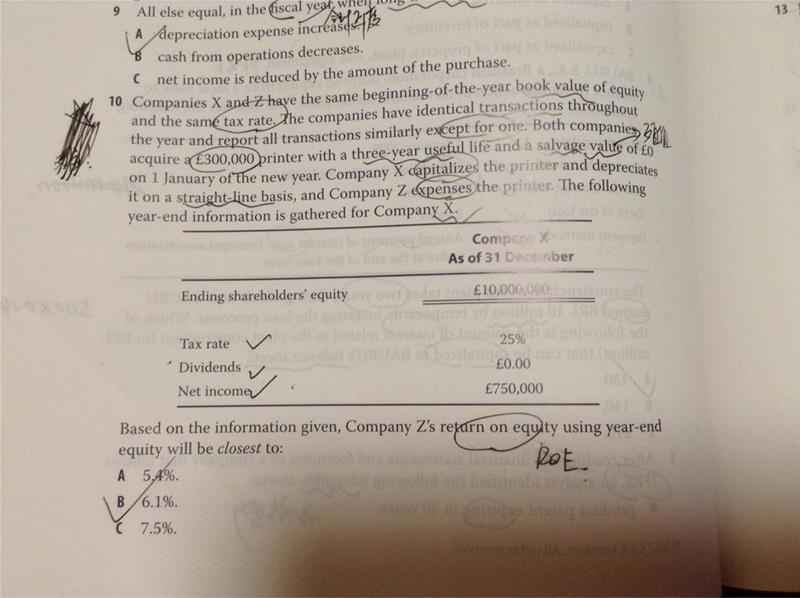 9 All else equal, in the fiscal year when long
A depreciation expense increases.
B cash from operations decreases.
C net income is reduced by the amount of the purchase.
10 Companies X and Z have the same beginning-of-the-year book value of equity
and the same tax rate. The companies have identical transactions throughout
the year and report all transactions similarly except for one. Both companies
acquire a £300,000 printer with a three-year useful life and a salvage value of £0
on 1 January of the new year. Company X capitalizes the printer and depreciates
it on a straight-line basis, and Company Z expenses the printer. The following
year-end information is gathered for Company X.
Company X
As of 31 December
Ending shareholders' equity £10,000,000
Tax rate 25%
Dividends £0.00
Net income £750,000
Based on the information given, Company Z's return on equity using year-end
equity will be closest to:
ROE
A 5.4%.
B 6.1%.
C 7.5%.
13